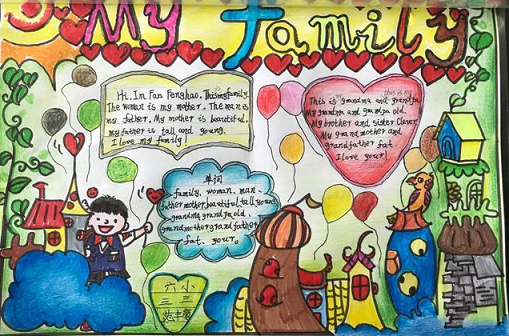 My family
Hi, Im Fan Penghao. This my family.
The woman is my mother. The man is
my father. My mother is beautiful.
my father is tall and young.
I love my family!
this is my
This is grandma and grandpa.
My grandma and grandpa old.
My brother and sister Clever
My grandmother and
grandfather fat.
I love your!
单词
family, woman, man
father, mother, beautiful, tall, young
grandma, grandpa, old,
grandmother grandfather
fat. your。
六 小
三 三
范